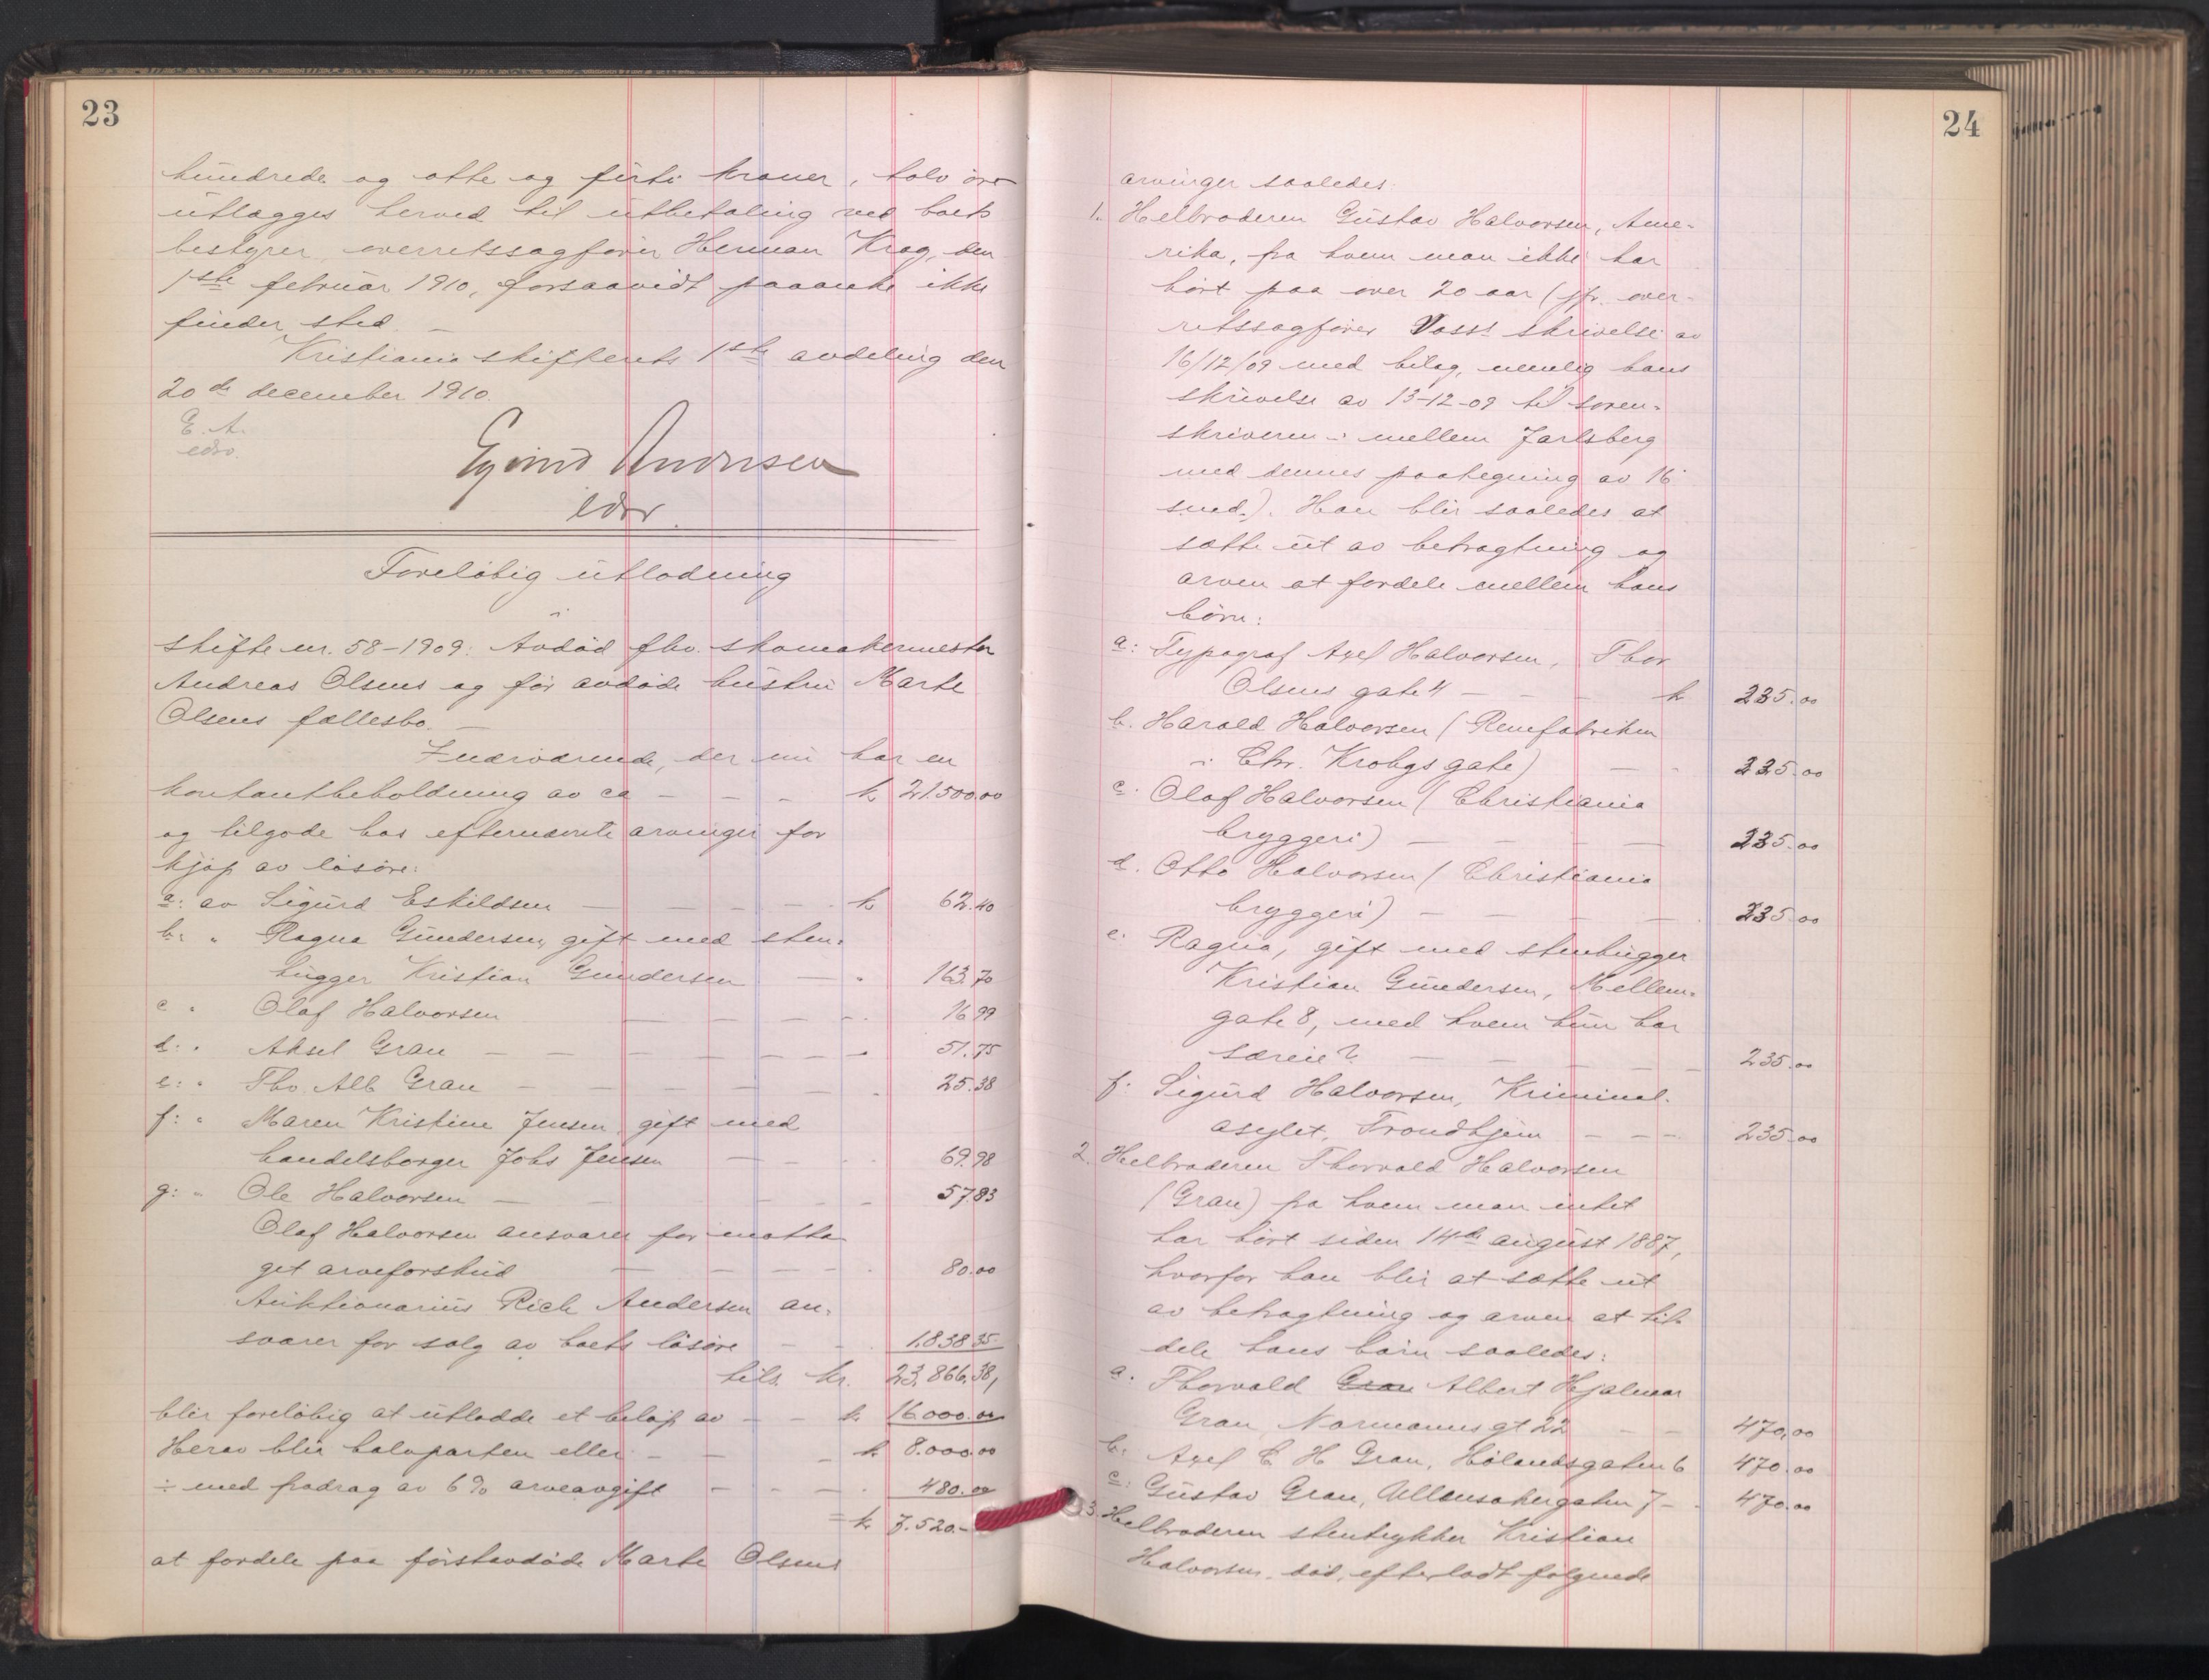 23
hundrede og otte og firti kroner, tolv øre
utlægges herved til utbetaling ved boets
bestyrer, overretssagfører Herman Krag, den
1ste februar 1910, forsaavidt paaanke ikke
finder sted. —
Kristiania skifterets 1ste avdeling den
20de december 1910.
E. A.
edv.
Eyvind Andersen
edv.
Foreløbig utlodning
i
skifte nr. 58-1909: Avdød fhv. skomakermester
Andreas Olsens og før avdøde hustru Marte
Olsens fællesbo. —
Indeværende, der nu har en
kontantbeholdning av ca — — — k 21.500.00
og tilgode hos efternævnte arvinger for
kjøp av løsøre:
a: av Sigurd Eskildsen — — — — — k 62.40
b: " Ragna Gundersen, gift med sten-
hugger Kristian Gundersen — " 163.70
c " Olaf Halvorsen — — — — " 16.99
d: " Aksel Gran — — — — — — — 51.75
e: " Tho. Alb Gran — — — — — " 25.38
f: " Maren Kristine Jensen, gift med
handelsborger Johs Jensen — — " 69.98
g: " Ole Halvorsen — — — — 57.83
Olaf Halvorsen ansvarer for motta-
get arveforskud — — — — — " 80.00
Auktionarius Rich Andersen an-
svarer for salg av boets løsøre — — " 1.838 35
tils. kr. 23.866.38,
blir foreløbig at utlodde et beløp av — — k. 16000.00
Herav blir halvparten eller — — — k 8.000.00
÷ med fradrag av 6 % arveavgift — — — " 480.00
= k 7.520.-
at fordele paa førstavdøde Marte Olsens
24
arvinger saaledes:
1. Helbroderen Gustav Halvorsen, Ame-
rika, fra hvem man ikke har
hørt paa over 20 aar (jfr. over-
retssagfører Voss's skrivelse av
16/12/09 med bilag, nemlig hans
skrivelse av 13-12-09 til soren-
skriveren i mellem Jarlsberg
med dennes paategning av 16
smd.). Han blir saaledes at
sætte ut av betragtning og
arven at fordele mellem hans
børn:
a: Typograf Axel Halvorsen, Thor
Olsens gate 4 — — — k 235.00
b. Harald Halvorsen (Remfabriken
i Chr. Krohgs gate) — - 235.00
c. Olaf Halvorsen (Christiania
bryggeri) — — — — 235.00
d. Otto Halvorsen (Christiania
bryggeri) — — — — 235.00
e. Ragna, gift med stenhugger
Kristian Gundersen, Mellem-
gate 8, med hvem hun har
særeie? — — — — 235.00
f. Sigurd Halvorsen, Kriminal-
asylet, Trondhjem — — — 235.00
2. Helbroderen Thorvald Halvorsen
(Gran) fra hvem man intet
har hørt siden 14de august 1887,
hvorfor han blir at sætte ut
av betragtning og arven at til-
dele hans børn saaledes:
a. Thorvald Gran Albert Hjalmar
Gran, Normannsgt 22 — — 470.00
b. Axel C H Gran, Hølandsgaten 6 470.00
c: Gustav Gran, Ullensakergaten 7 — 470.00
3. Helbroderen stentrykker Kristian
Halvorsen, død, efterladt følgende